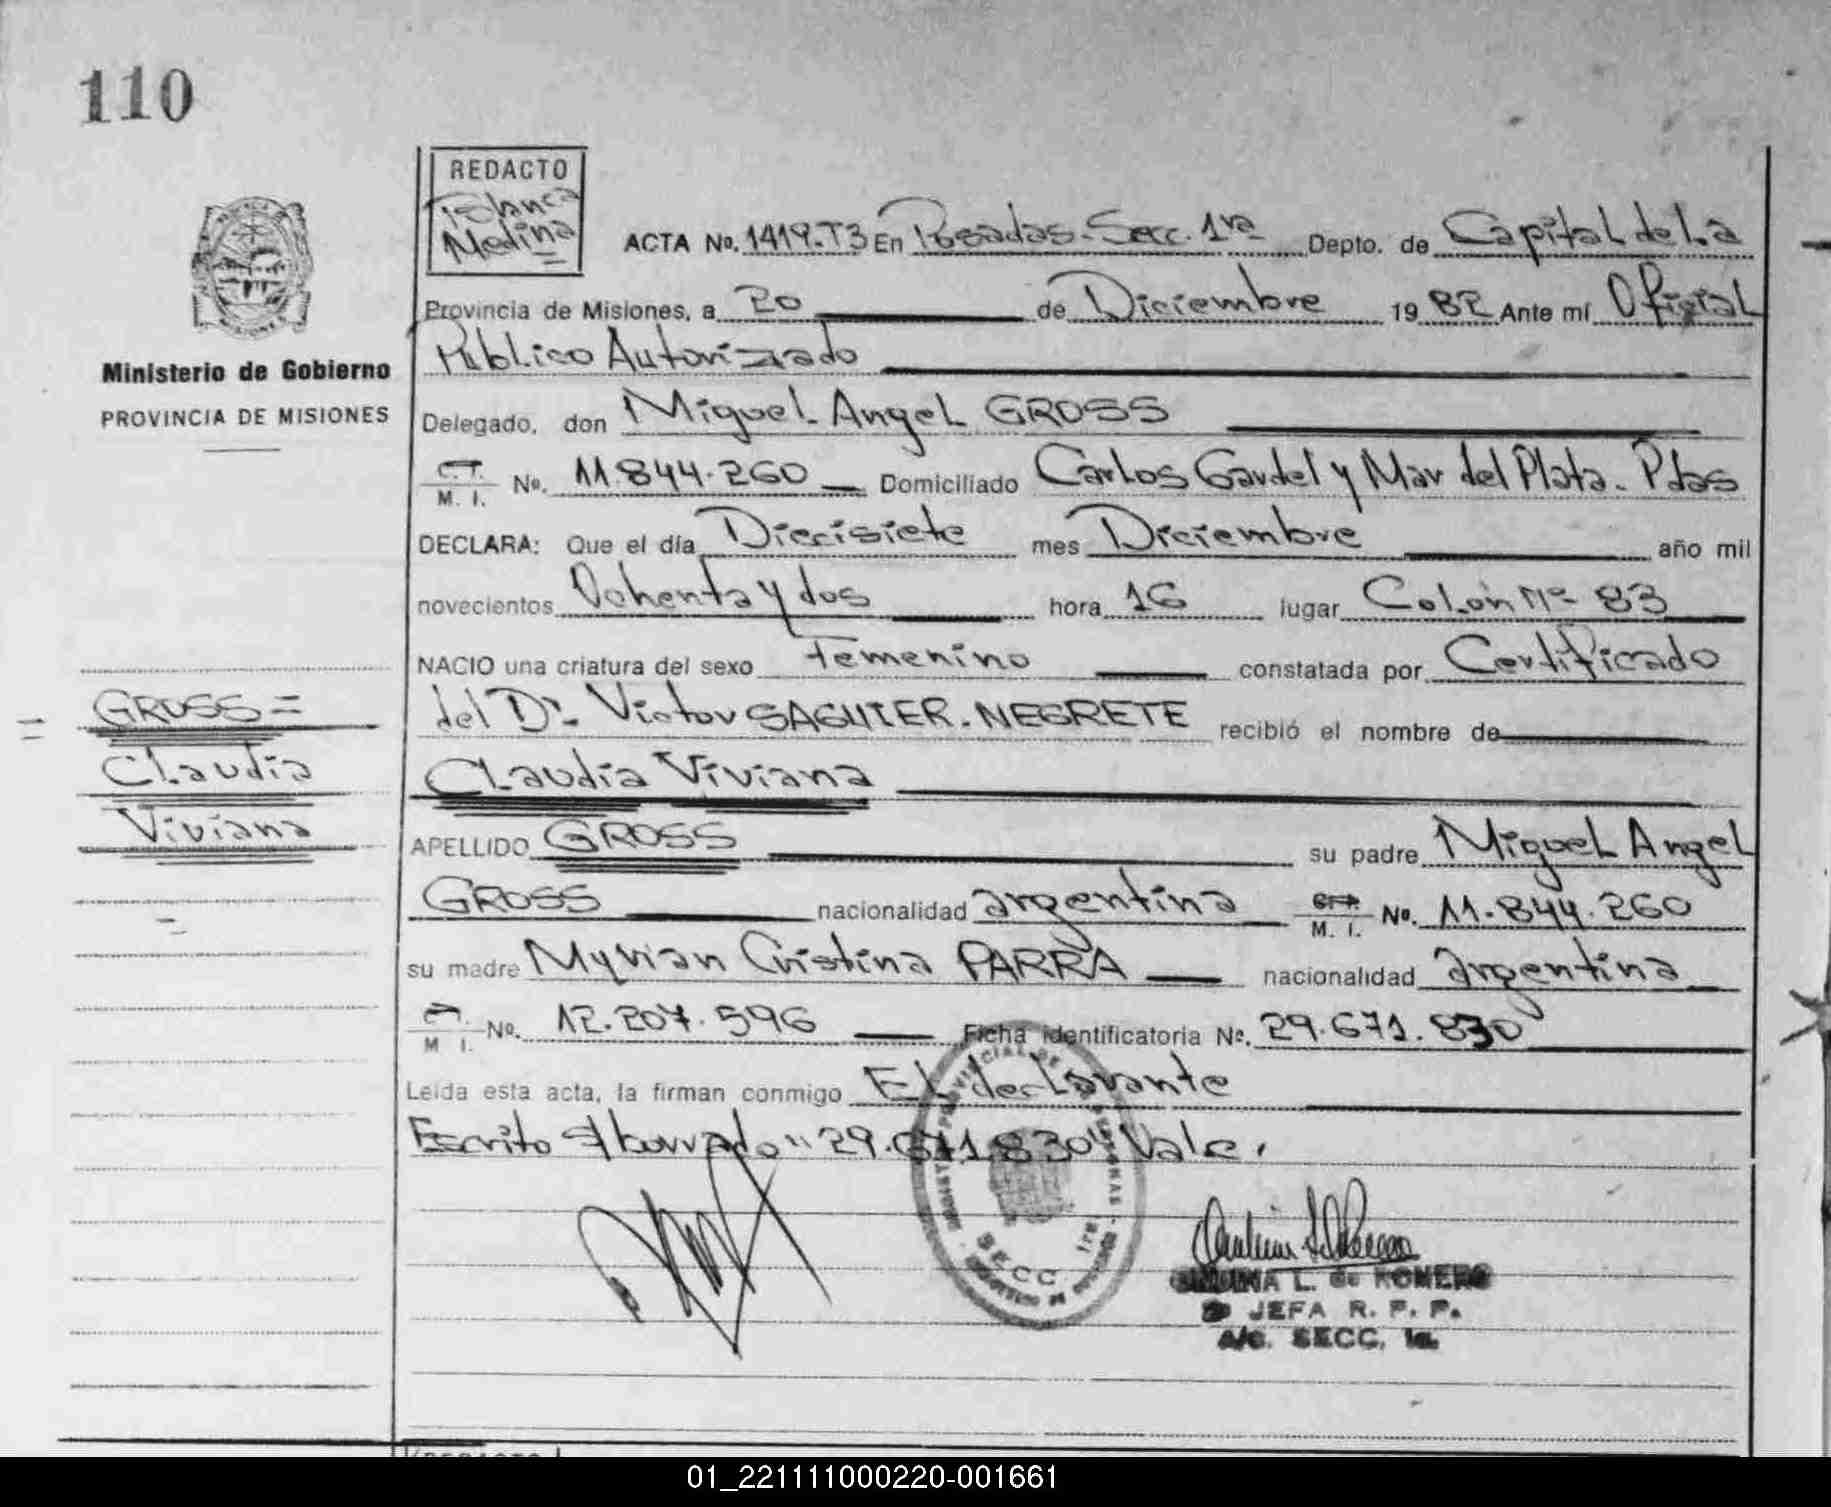 110
REDACTO
Blanca
Medina
ACTA No. 1419-T3 En Posadas-Secc. 1ra Depto. de Capital de La
Provincia de Misiones, a 20 de Diciembre 1982 Ante mí Oficial
Ministerio de Gobierno
PROVINCIA DE MISIONES
Público Autorizado
Delegado, don Miguel Angel GROSS
C.I. M. I. No. 11.844.260 Domiciliado Carlos Gardel y Mar del Plata. Pdas
DECLARA: Que el día Diecisiete mes Diciembre año mil
novecientos Ochenta y dos hora 16 lugar Colón Nº 83
NACIO una criatura del sexo femenino constatada por Certificado
GROSS =
Claudia
Viviana
del Dr. Victor SAGUIER-NEGRETE recibió el nombre de
Claudia Viviana
APELLIDO GROSS su padre Miguel Angel
GROSS nacionalidad argentina M. I. No. 11.844.260
su madre Myrian Cristina PARRA nacionalidad argentina
M. I. No. 12.207.596 Ficha identificatoria No. 29.671.830
Leída esta acta, la firman conmigo El declarante
Escrito s/borrado "29.671.830" Vale.
SECC. 1ra
L. de ROMERO
JEFA R. P. P.
A/C. SECC. 1a.
REDACTO
01_221111000220-001661